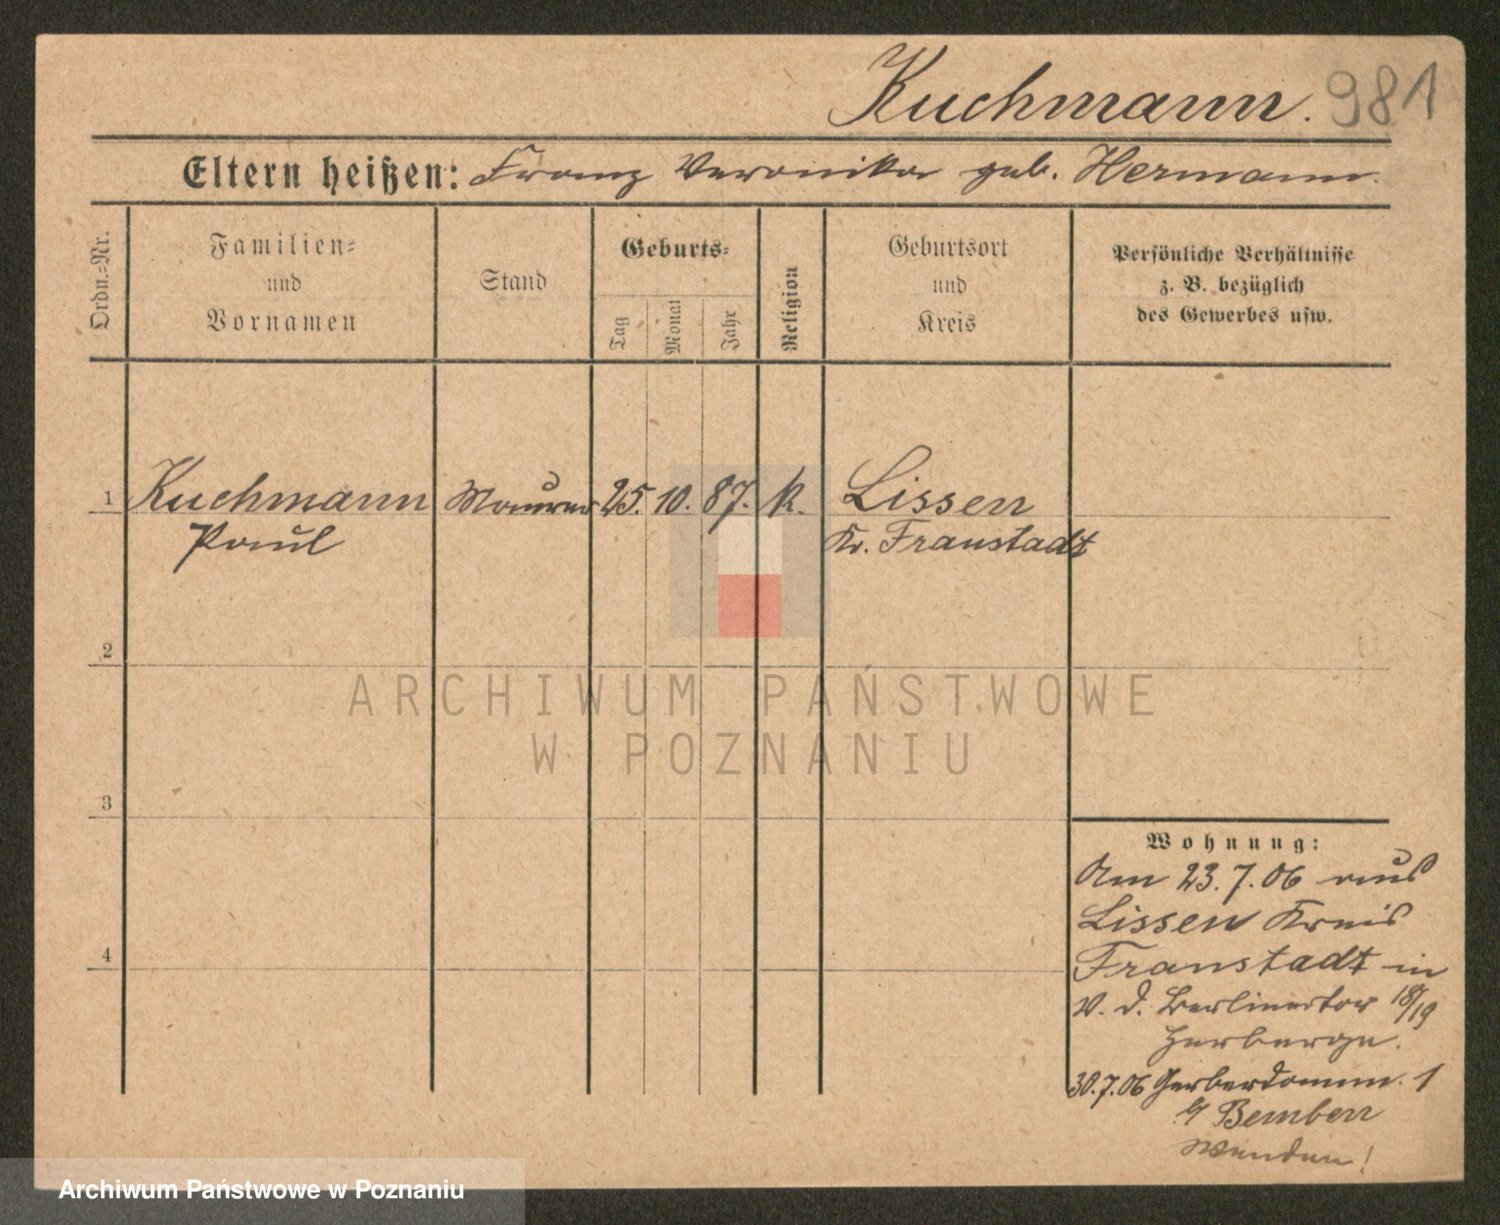 Kuchmann. 981
Eltern heißen: Franz Veronika geb. Hermann.
Ordn.=Nr.
Familien=
und
Vornamen
Stand
Geburts=
Tag
Monat
Jahr
Religion
Geburtsort
und
Kreis
Persönliche Verhältnisse
z. B. bezüglich
des Gewerbes usw.
1 Kuchmann Maurer 25. 10. 87. k. Lissen
Paul Kr. Fraustadt
2
3
4
ARCHIWUM PAŃSTWOWE
W POZNANIU
Wohnung:
Am 23.7.06 aus
Lissen Kreis
Fraustadt in
V. d. Berlinertor 18/19
Herberge.
30.7.06 Gerberdamm. 1
b/ Bember
Wenden!
Archiwum Państwowe w Poznaniu